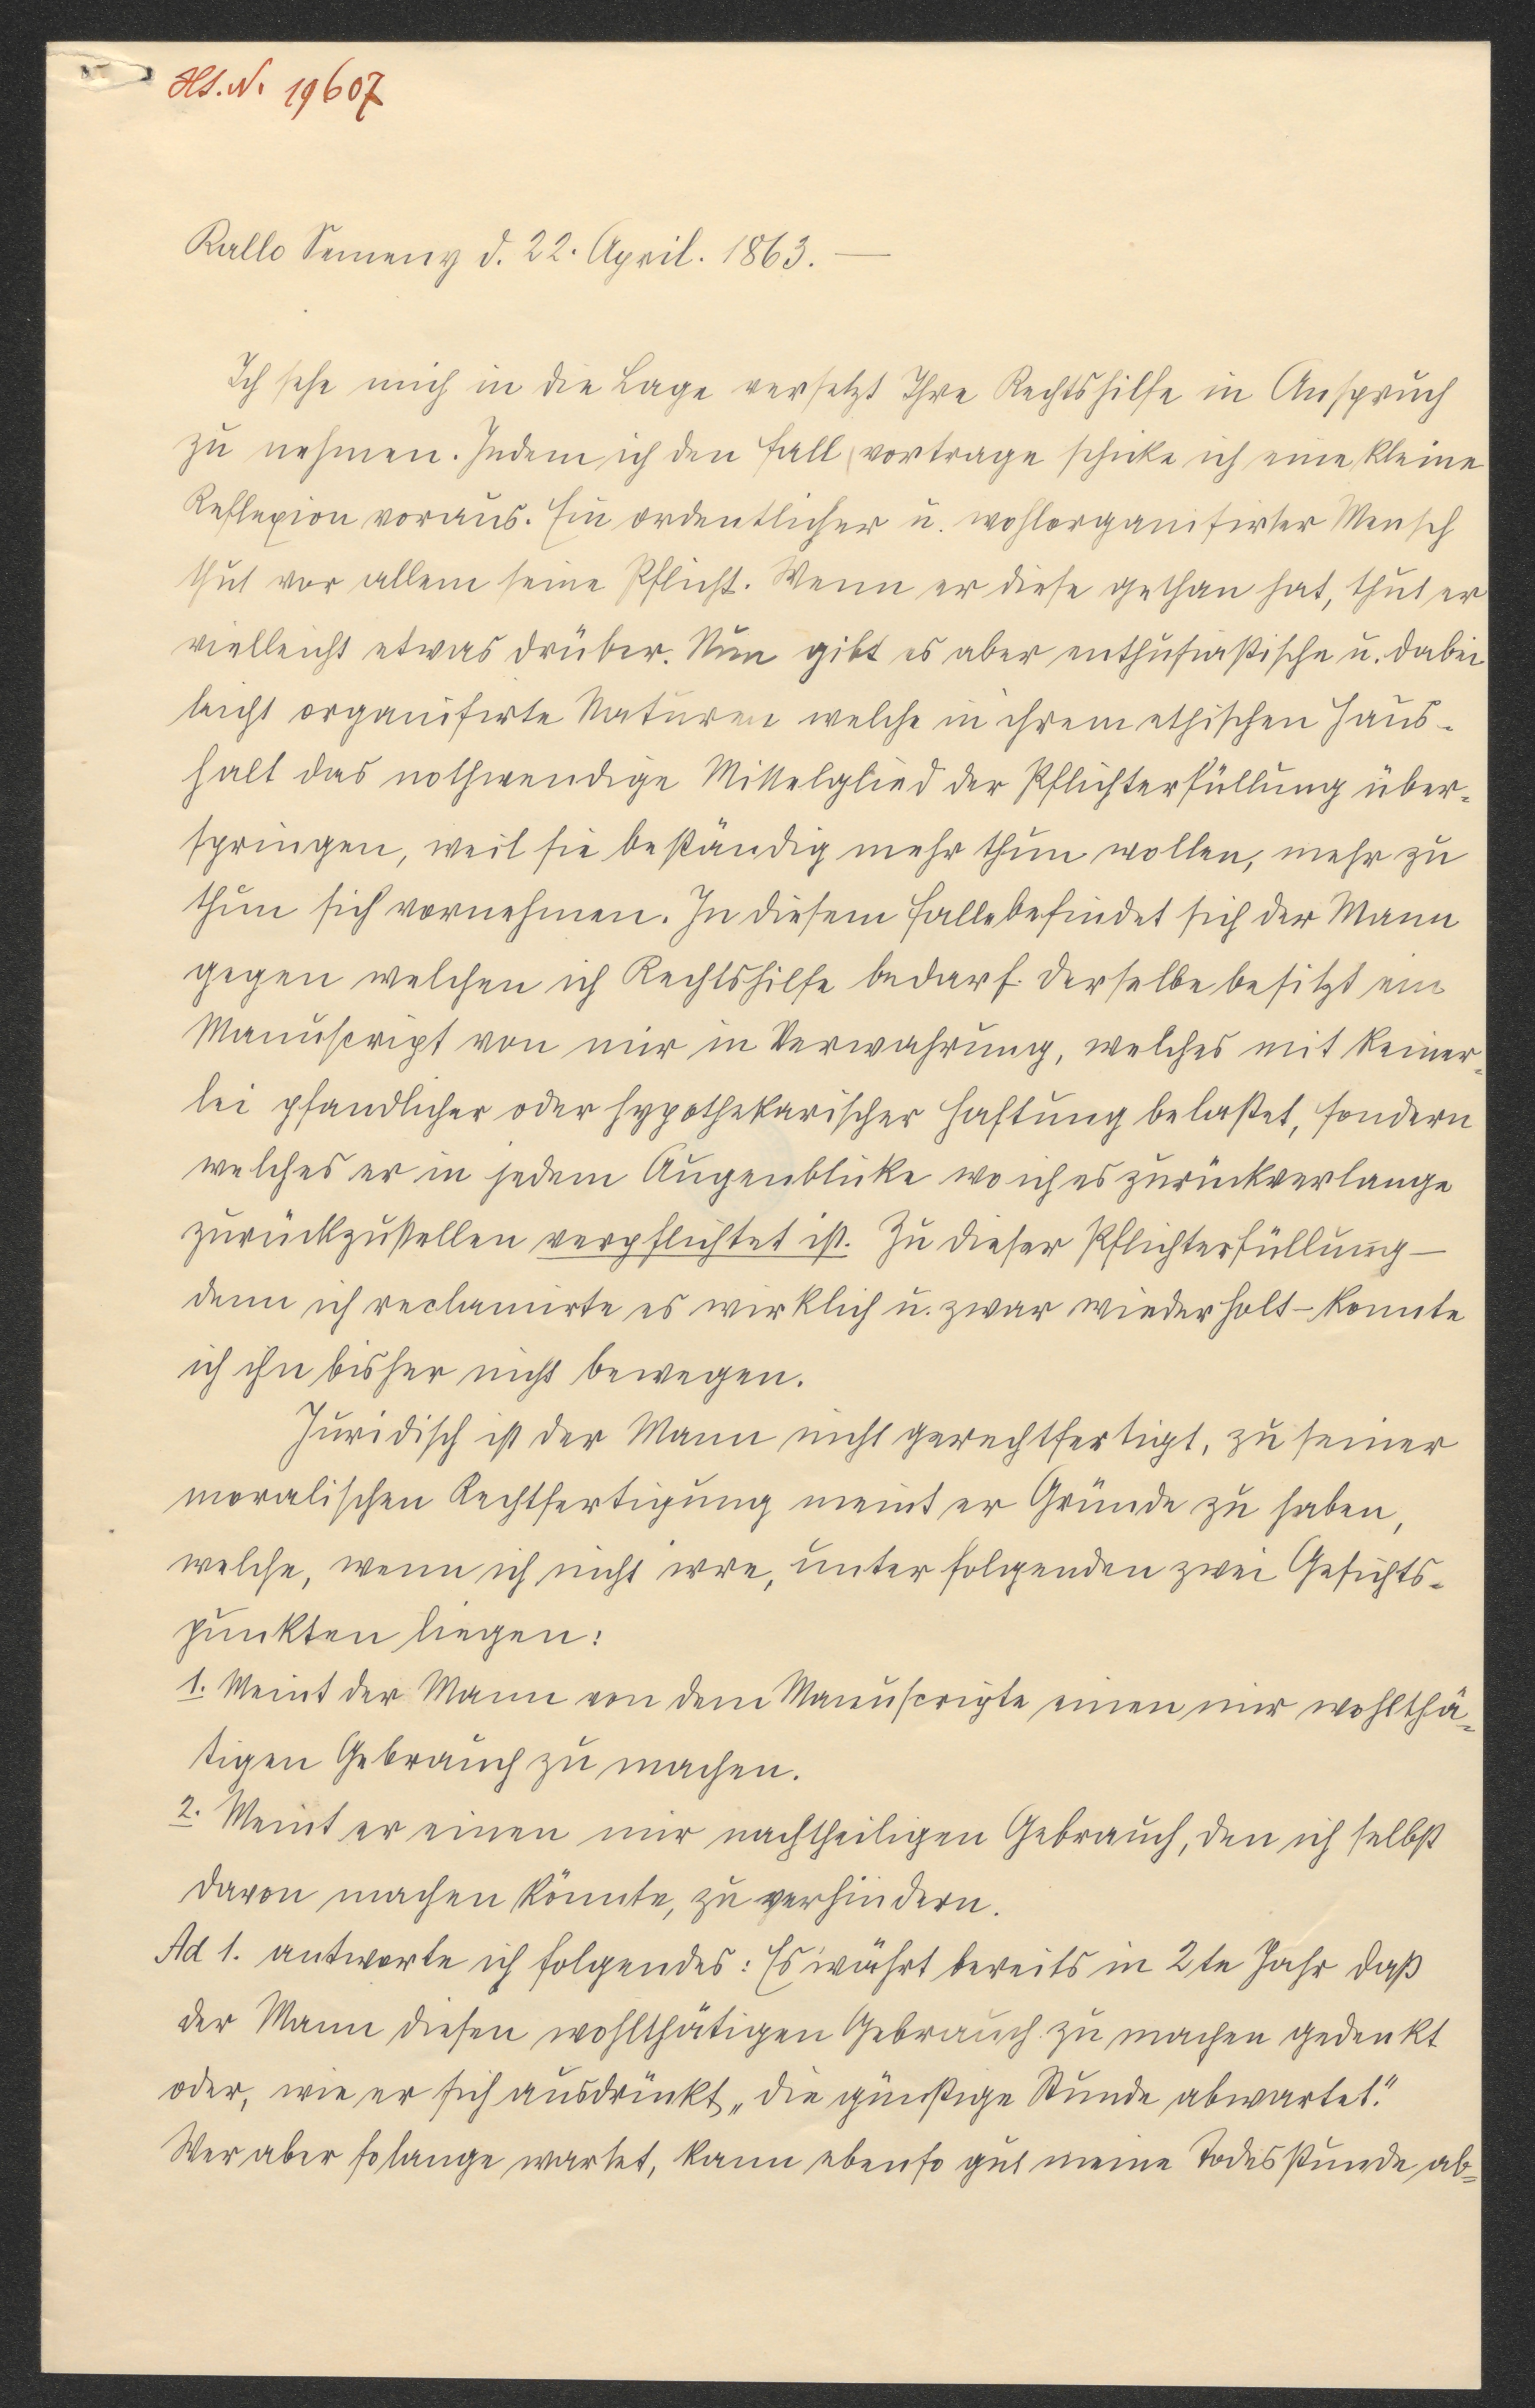 Hs. N. 19607
Kallo Semeny d. 22. April. 1863. —
Ich sehe mich in die Lage versetzt Ihre Rechtshilfe in Anspruch
zu nehmen. Indem ich den Fall vortrage schicke ich eine kleine
Reflexion voraus. Ein ordentlicher u. wohlorganisirter Mensch
thut vor allem seine Pflicht. Wenn er diese gethan hat, thut er
vielleicht etwas drüber. Nun gibt es aber enthusiastische u. dabei
leicht organisirte Naturen welche in ihrem ethischen Haus-
halt das nothwendige Mittelglied der Pflichterfüllung über-
springen, weil sie beständig mehr thun wollen, mehr zu
thun sich vornehmen. In diesem Falle befindet sich der Mann
gegen welchen ich Rechtshilfe bedarf. Derselbe besitzt ein
Manuscript von mir in Verwahrung, welches mit keiner-
lei pfandlicher oder hypothekarischer Haftung belastet, sondern
welches er in jedem Augenblicke wo ich es zurückverlange
zurückzustellen verpflichtet ist. Zu dieser Pflichterfüllung —
denn ich reclamirte es wirklich u. zwar wiederholt – konnte
ich ihn bisher nicht bewegen.
Juridisch ist der Mann nicht gerechtfertigt, zu seiner
moralischen Rechtfertigung meint er Gründe zu haben,
welche, wenn ich nicht irre, unter folgenden zwei Gesichts-
punkten liegen:
1. Meint der Mann von dem Manuscripte einen mir wohlthä-
tigen Gebrauch zu machen.
2. Meint er einen mir nachtheiligen Gebrauch, den ich selbst
davon machen könnte, zu verhindern.
Ad 1. antworte ich folgendes: Es währt bereits in 2te Jahr daß
der Mann diesen wohlthätigen Gebrauch zu machen gedenkt
oder, wie er sich ausdrückt „die günstige Stunde abwartet."
Wer aber solange wartet, kann ebenso gut meine Todesstunde ab-